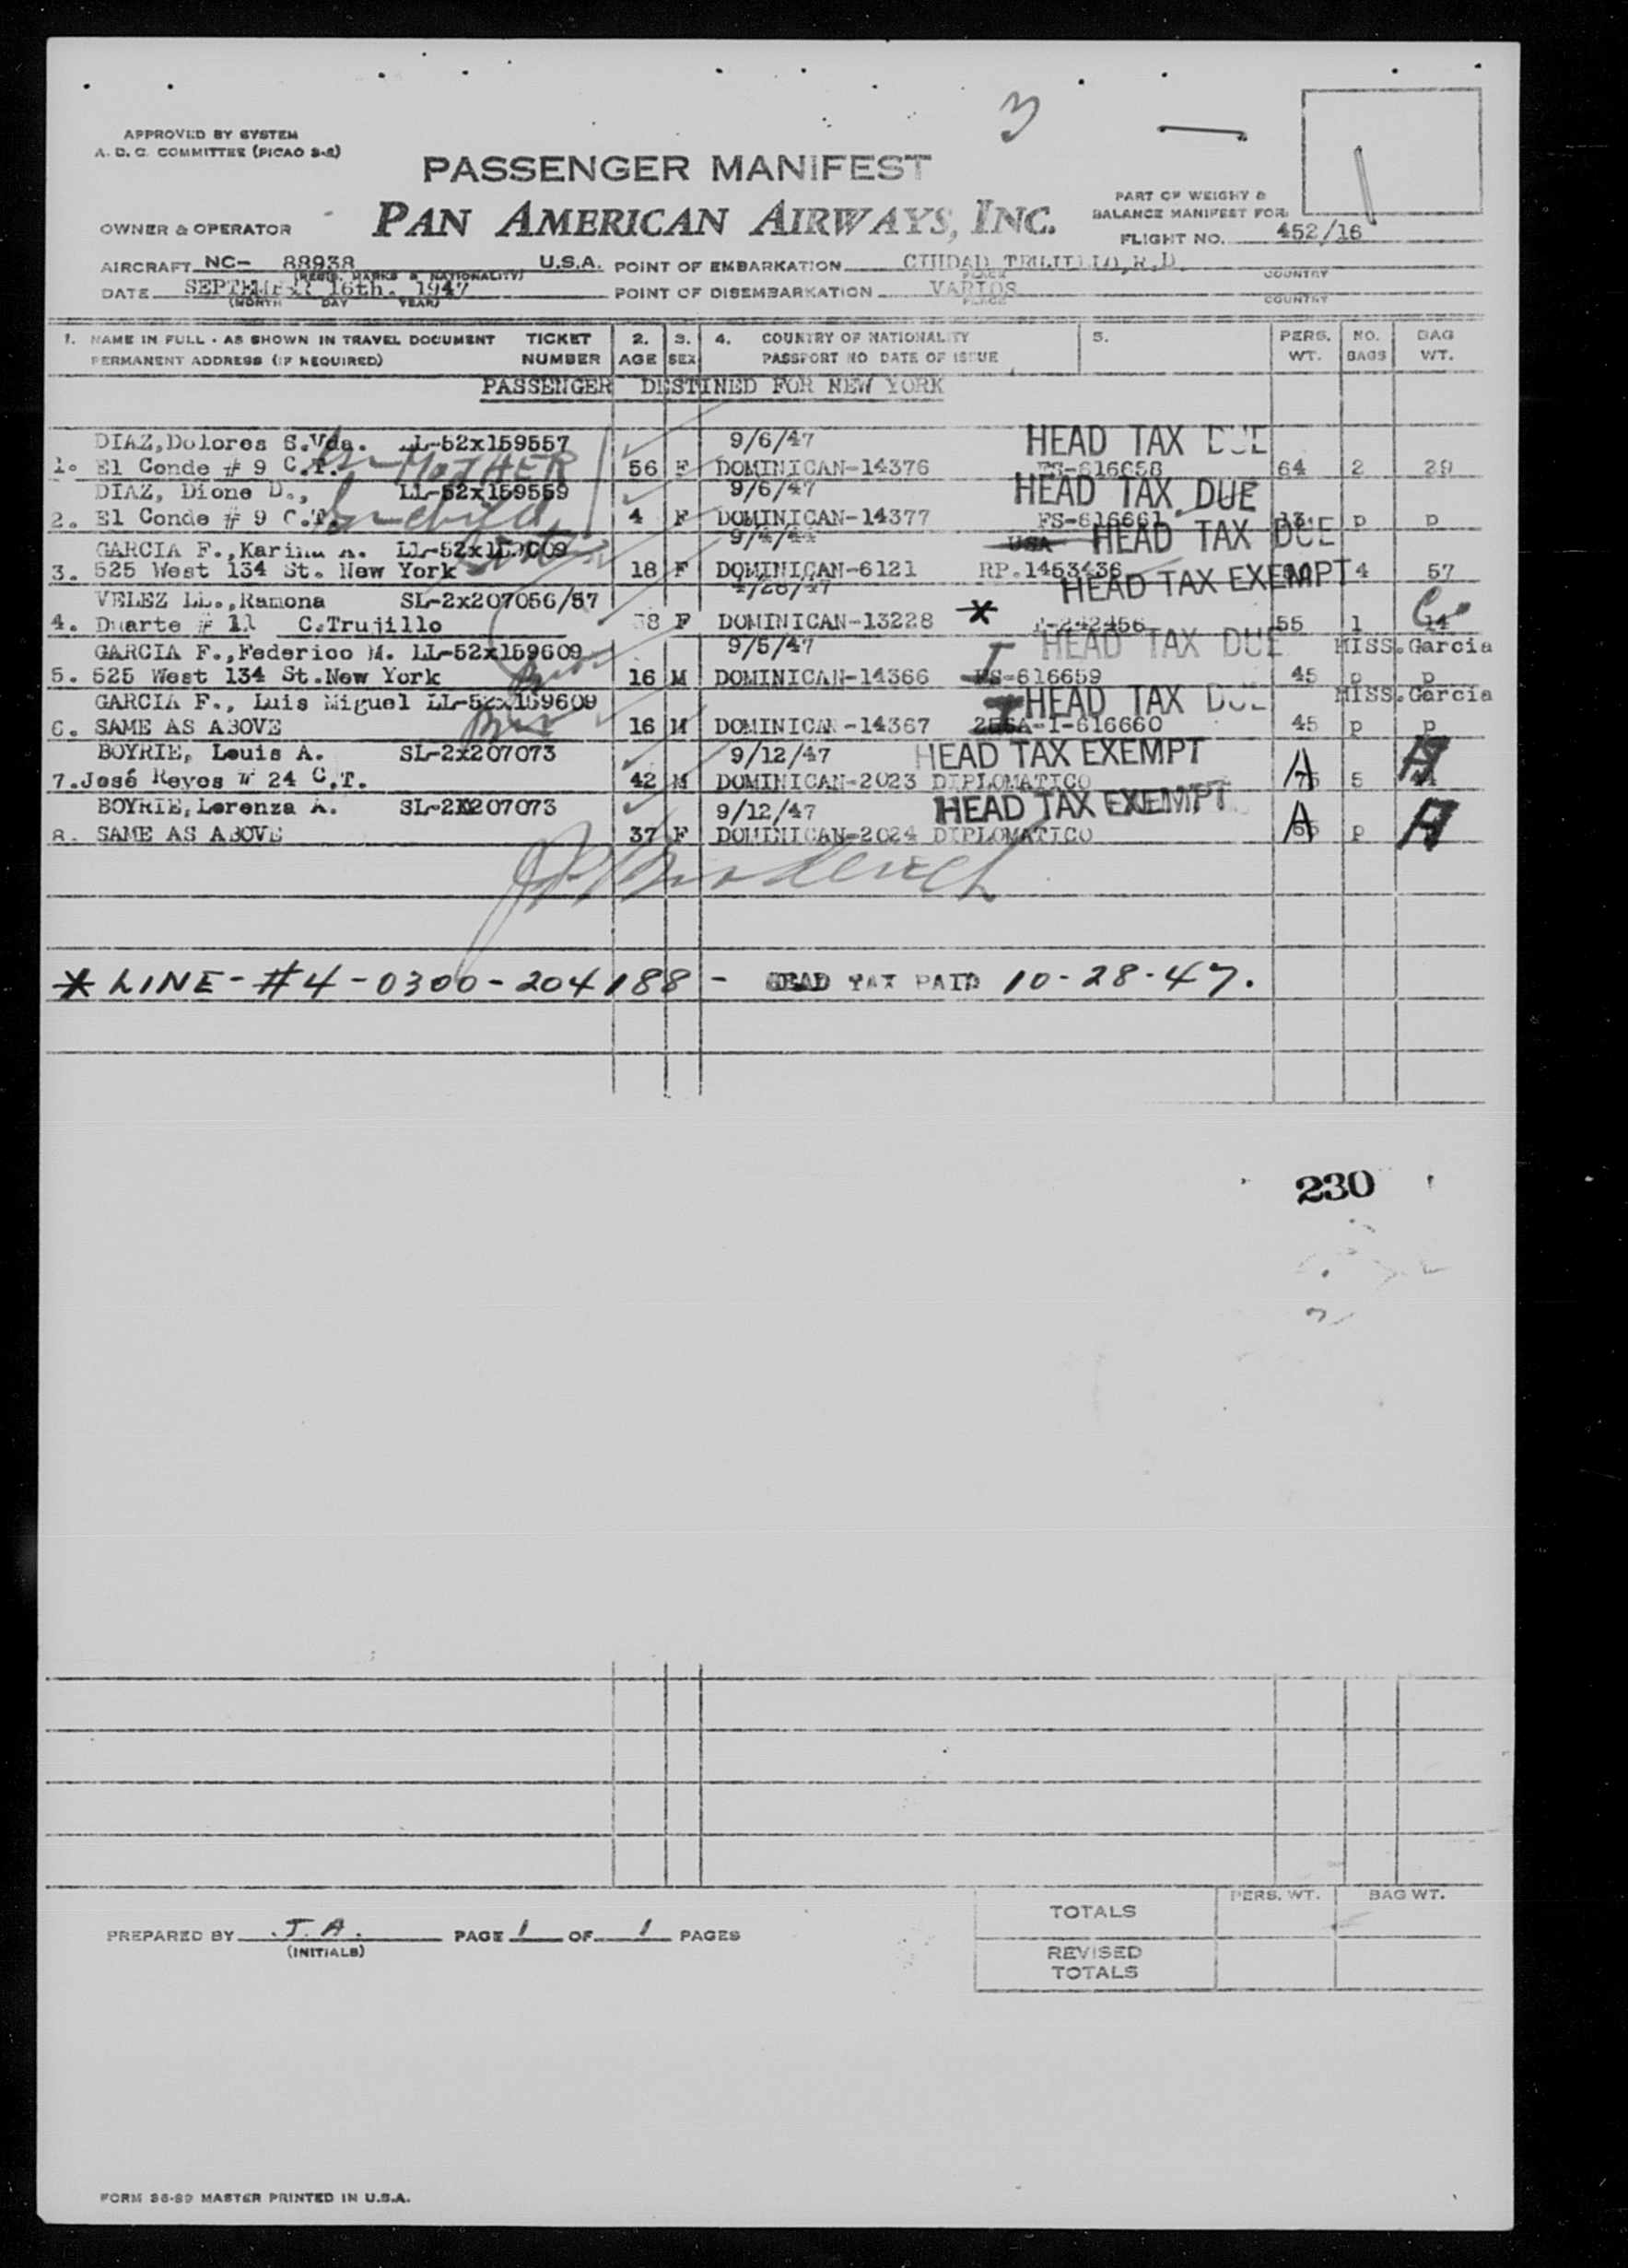 3
APPROVED BY SYSTEM
A. D. C. COMMITTEE (PICAO 3-2)
PASSENGER MANIFEST
PAN AMERICAN AIRWAYS, INC.
OWNER & OPERATOR
PART OF WEIGHT &
BALANCE MANIFEST FOR
FLIGHT NO. 452/16
AIRCRAFT NC- 88938 U.S.A. POINT OF EMBARKATION CIUDAD TRUJILLO, R.D.
(REGIS. MARKS & NATIONALITY) PLACE COUNTRY
DATE SEPTEMBER 16th. 1947 POINT OF DISEMBARKATION VARIOS
(MONTH DAY YEAR) PLACE COUNTRY
1. NAME IN FULL - AS SHOWN IN TRAVEL DOCUMENT TICKET 2. 3. 4. COUNTRY OF NATIONALITY 5. PERS. NO. BAG
PERMANENT ADDRESS (IF REQUIRED) NUMBER AGE SEX PASSPORT NO DATE OF ISSUE WT. BAGS WT.
PASSENGER DESTINED FOR NEW YORK
DIAZ, Dolores S.Vda. LL-52x159557 9/6/47 HEAD TAX DUE
1. El Conde # 9 C.T. MOTHER 56 F DOMINICAN-14376 FS-616658 64 2 29
DIAZ, Dione D., LL-52x159559 9/6/47 HEAD TAX DUE
2. El Conde # 9 C.T. Grchild 4 F DOMINICAN-14377 FS-616661 13 p p
GARCIA F., Karina A. LL-52x159609 9/4/44 USA HEAD TAX DUE
3. 525 West 134 St. New York Sister 18 F DOMINICAN-6121 RP.1453436 4 57
HEAD TAX EXEMPT
VELEZ LL., Ramona SL-2x207056/57 4/26/47
4. Duarte # 11 C.Trujillo 38 F DOMINICAN-13228 * 55 1 14
GARCIA F., Federico M. LL-52x159609 9/5/47 I HEAD TAX DUE MISS. Garcia
5. 525 West 134 St. New York 16 M DOMINICAN-14366 FS-616659 45 p p
GARCIA F., Luis Miguel LL-52x159609 I HEAD TAX DUE MISS. Garcia
6. SAME AS ABOVE 16 M DOMINICAN-14367 I-616660 45 p p
BOYRIE, Louis A. SL-2x207073 9/12/47 HEAD TAX EXEMPT
7. José Reyes # 24 C.T. 42 M DOMINICAN-2023 DIPLOMATICO 75 A 5 A
BOYRIE, Lorenza A. SL-2x207073 9/12/47 HEAD TAX EXEMPT
8. SAME AS ABOVE 37 F DOMINICAN-2024 DIPLOMATICO A p A
* LINE - #4 - 0300 - 204188 - HEAD TAX PAID 10-28-47.
230
PERS. WT. BAG WT.
TOTALS
PREPARED BY J. A. PAGE 1 OF 1 PAGES
(INITIALS)
REVISED
TOTALS
FORM 36-89 MASTER PRINTED IN U.S.A.